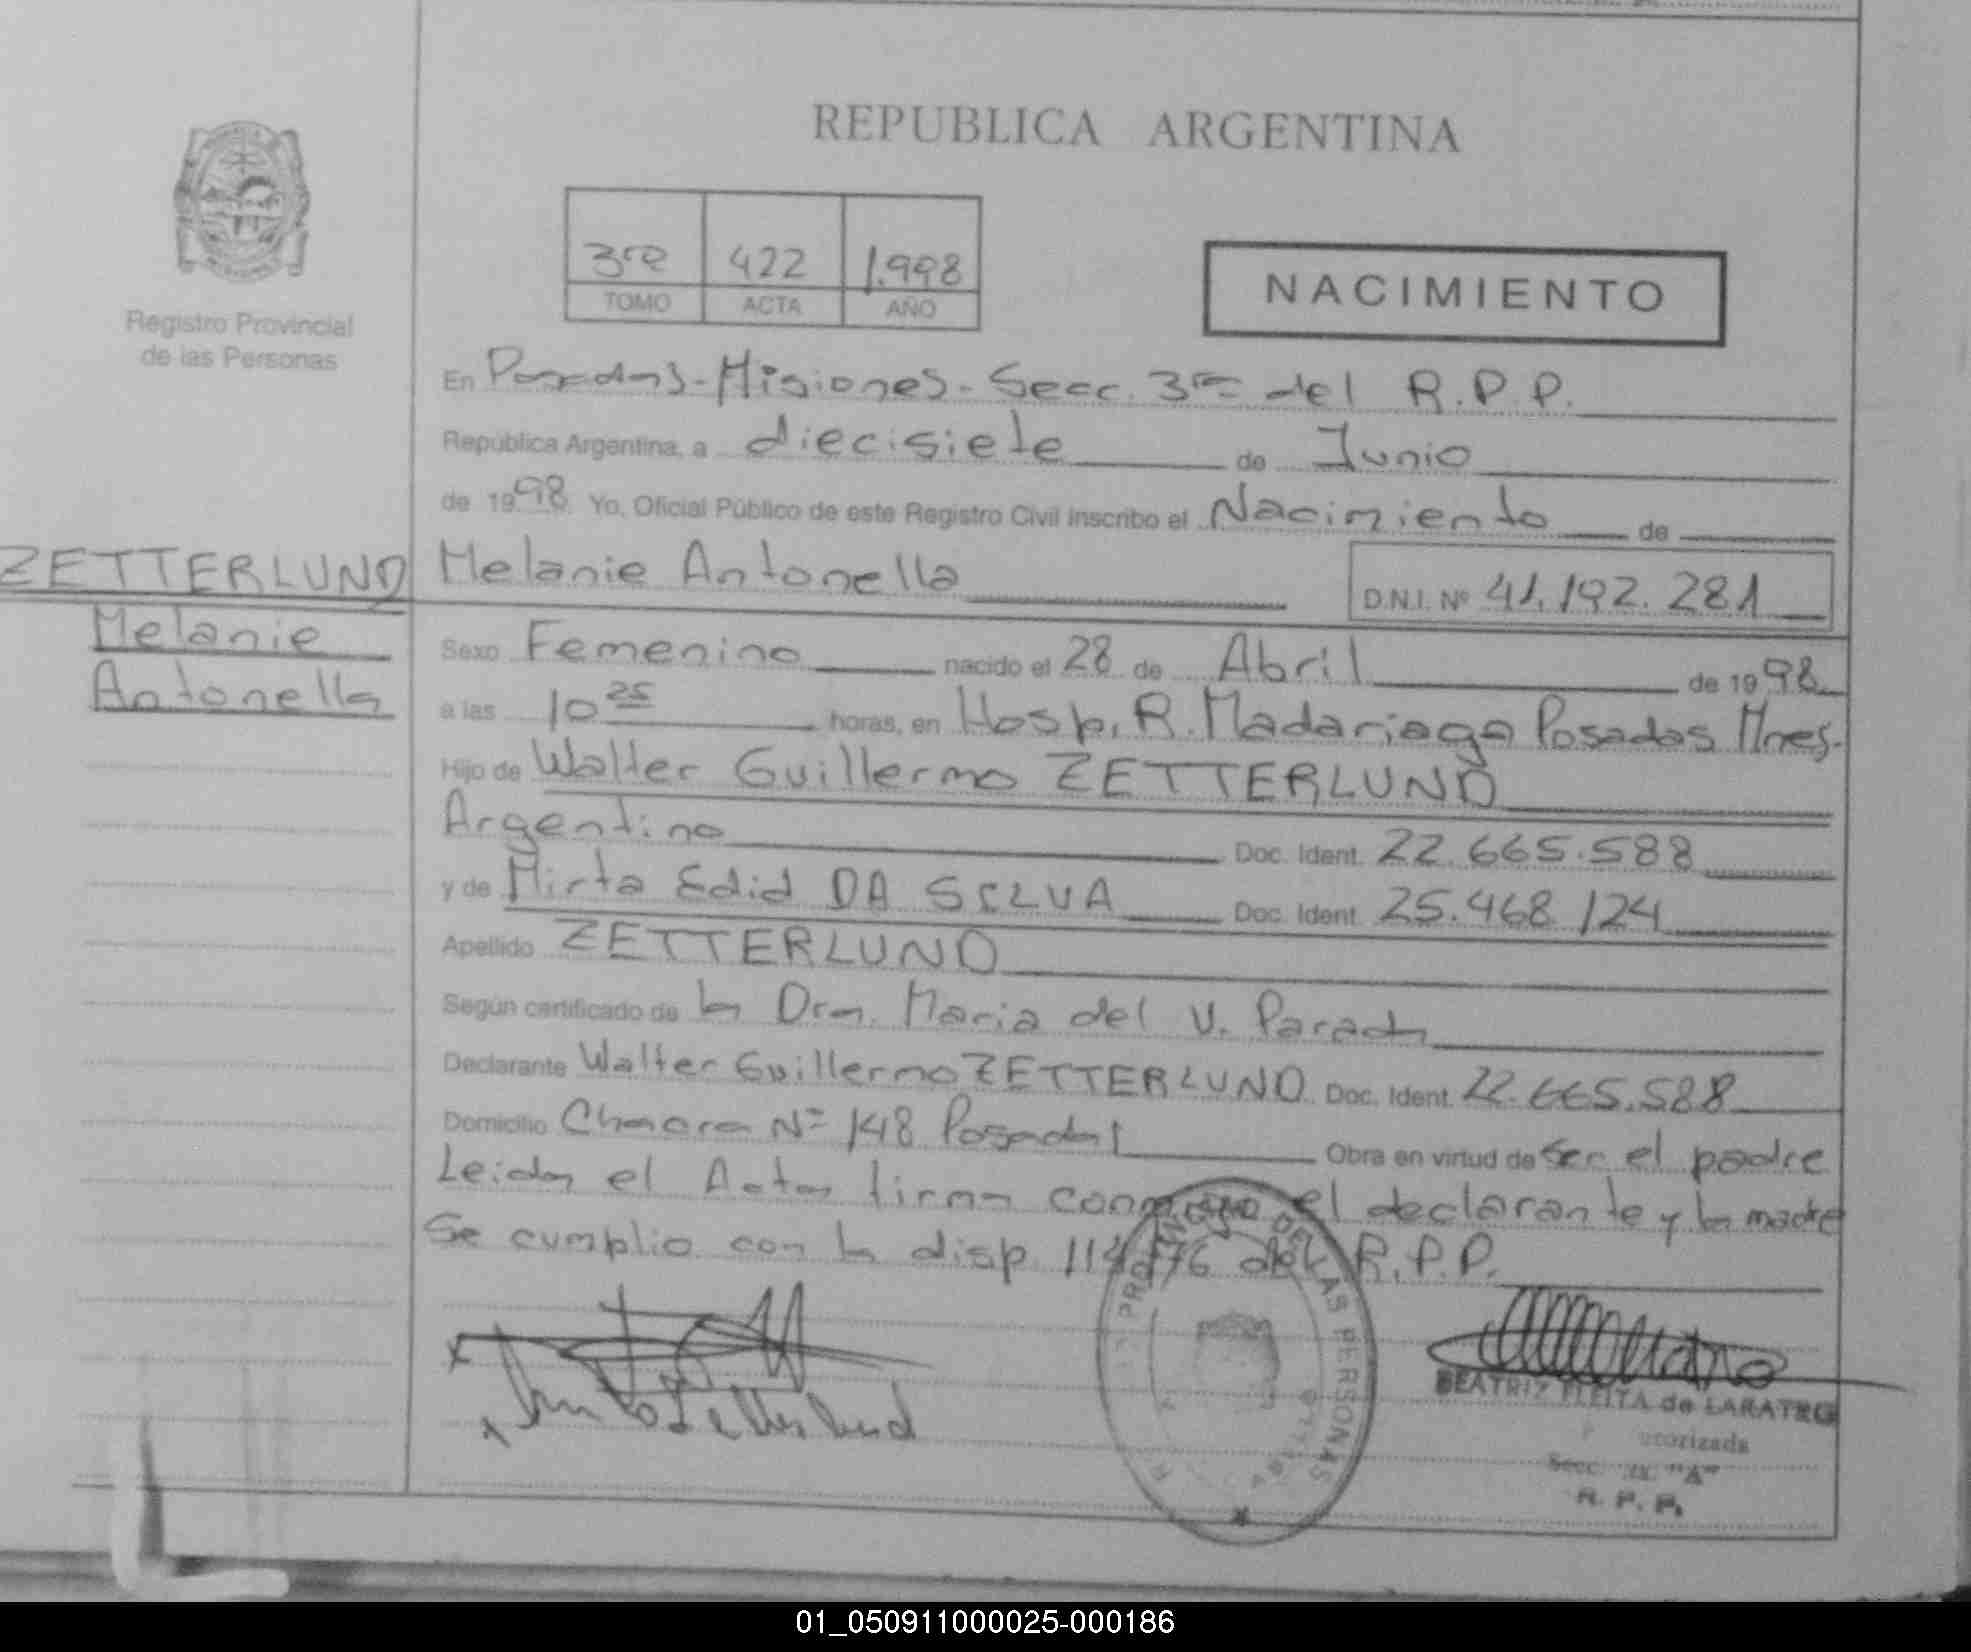 REPUBLICA ARGENTINA
3ra 422 1.998
TOMO ACTA AÑO
NACIMIENTO
Registro Provincial
de las Personas
En Posadas - Misiones - Secc. 3ra del R.P.P.
República Argentina, a diecisiete de Junio
de 1998 Yo, Oficial Público de este Registro Civil inscribo el Nacimiento de
ZETTERLUND
Melanie
Antonella
Melanie Antonella D.N.I. Nº 41.192.281
Sexo Femenino nacido el 28 de Abril de 1998
a las 10 25 horas, en Hosp. R. Madariaga Posadas Mnes.
Hijo de Walter Guillermo ZETTERLUND
Argentino Doc. Ident. 22.665.588
y de Mirta Edid DA SILVA Doc. Ident. 25.468.124
Apellido ZETTERLUND
Según certificado de la Dra. Maria del V. Parada
Declarante Walter Guillermo ZETTERLUND Doc. Ident. 22.665.588
Domicilio Chacra Nº 148 Posadas Obra en virtud de ser el padre
Leida el Acta firma conmigo el declarante y la madre
Se cumplio con la disp. 114/76 del R.P.P.
PROVINCIAL DE LAS PERSONAS
BEATRIZ FLEITA de
Secc. "A"
R. P. P.
01_050911000025-000186